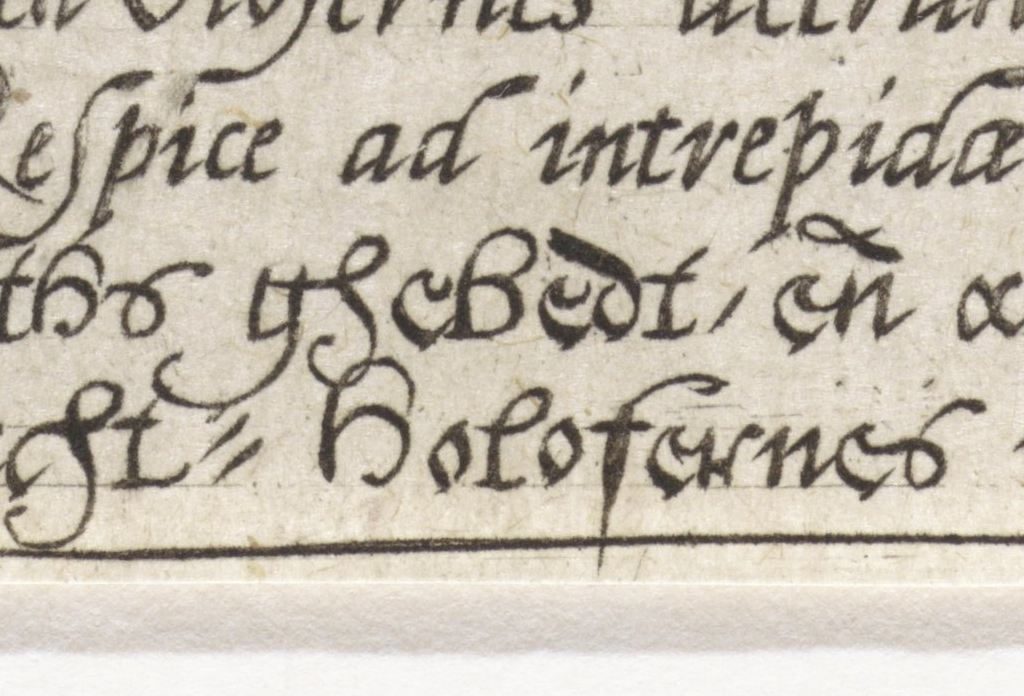 Holofernes
Respice ad intrepidæ
ths ghebedt, en̄
cht= Holofernes